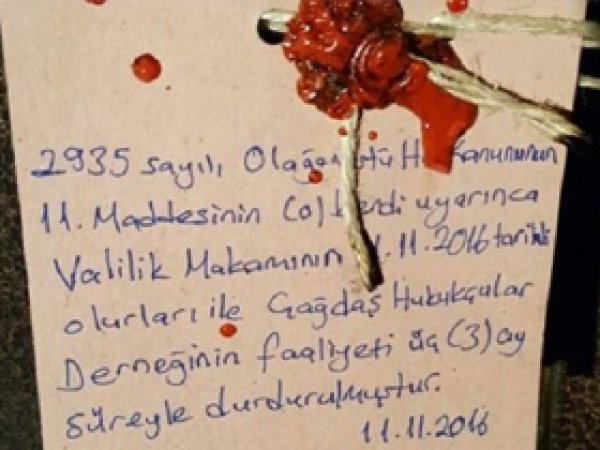 2935 sayılı, Olağanüstü Hal Kanununun
11. Maddesinin (o) bendi uyarınca
Valilik Makamının 11.11.2016 tarihli
olurları ile Çağdaş Hukukçular
Derneğinin faaliyeti üç (3) ay
süreyle durdurulmuştur.
11.11.2016